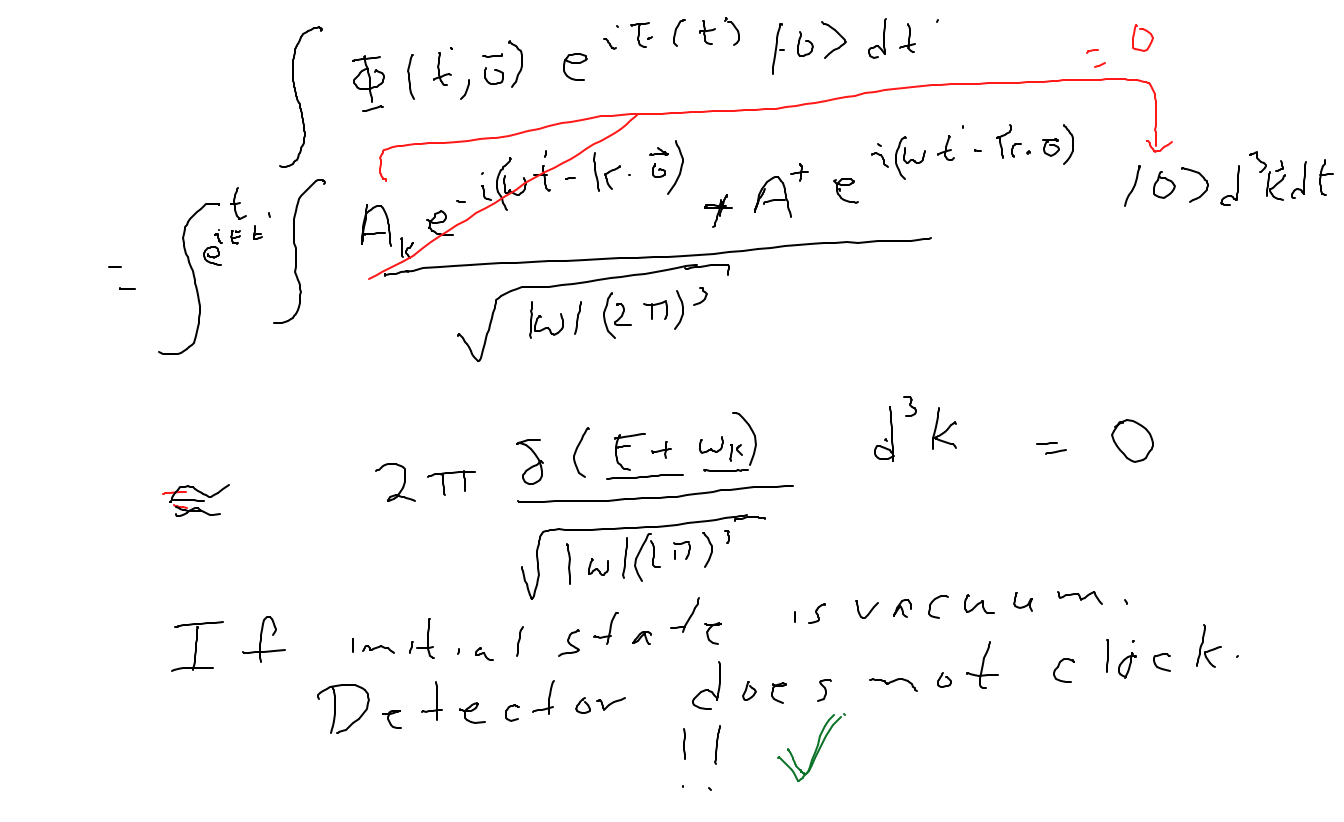 ∫ Φ(t', 0⃗) e^{iE(t')} |0> dt' = 0
= ∫^t e^{iEt'} ∫ (A_k e^{-i(ωt' - k·0⃗)} + A^+ e^{i(ωt' - k·0⃗)}) / √(|ω|(2π)^3) |0> d^3k dt
≈ 2π δ(E + ω_k) / √(|ω|(2π)^3) d^3k = 0
If initial state is vacuum.
Detector does not click.
!! ✓